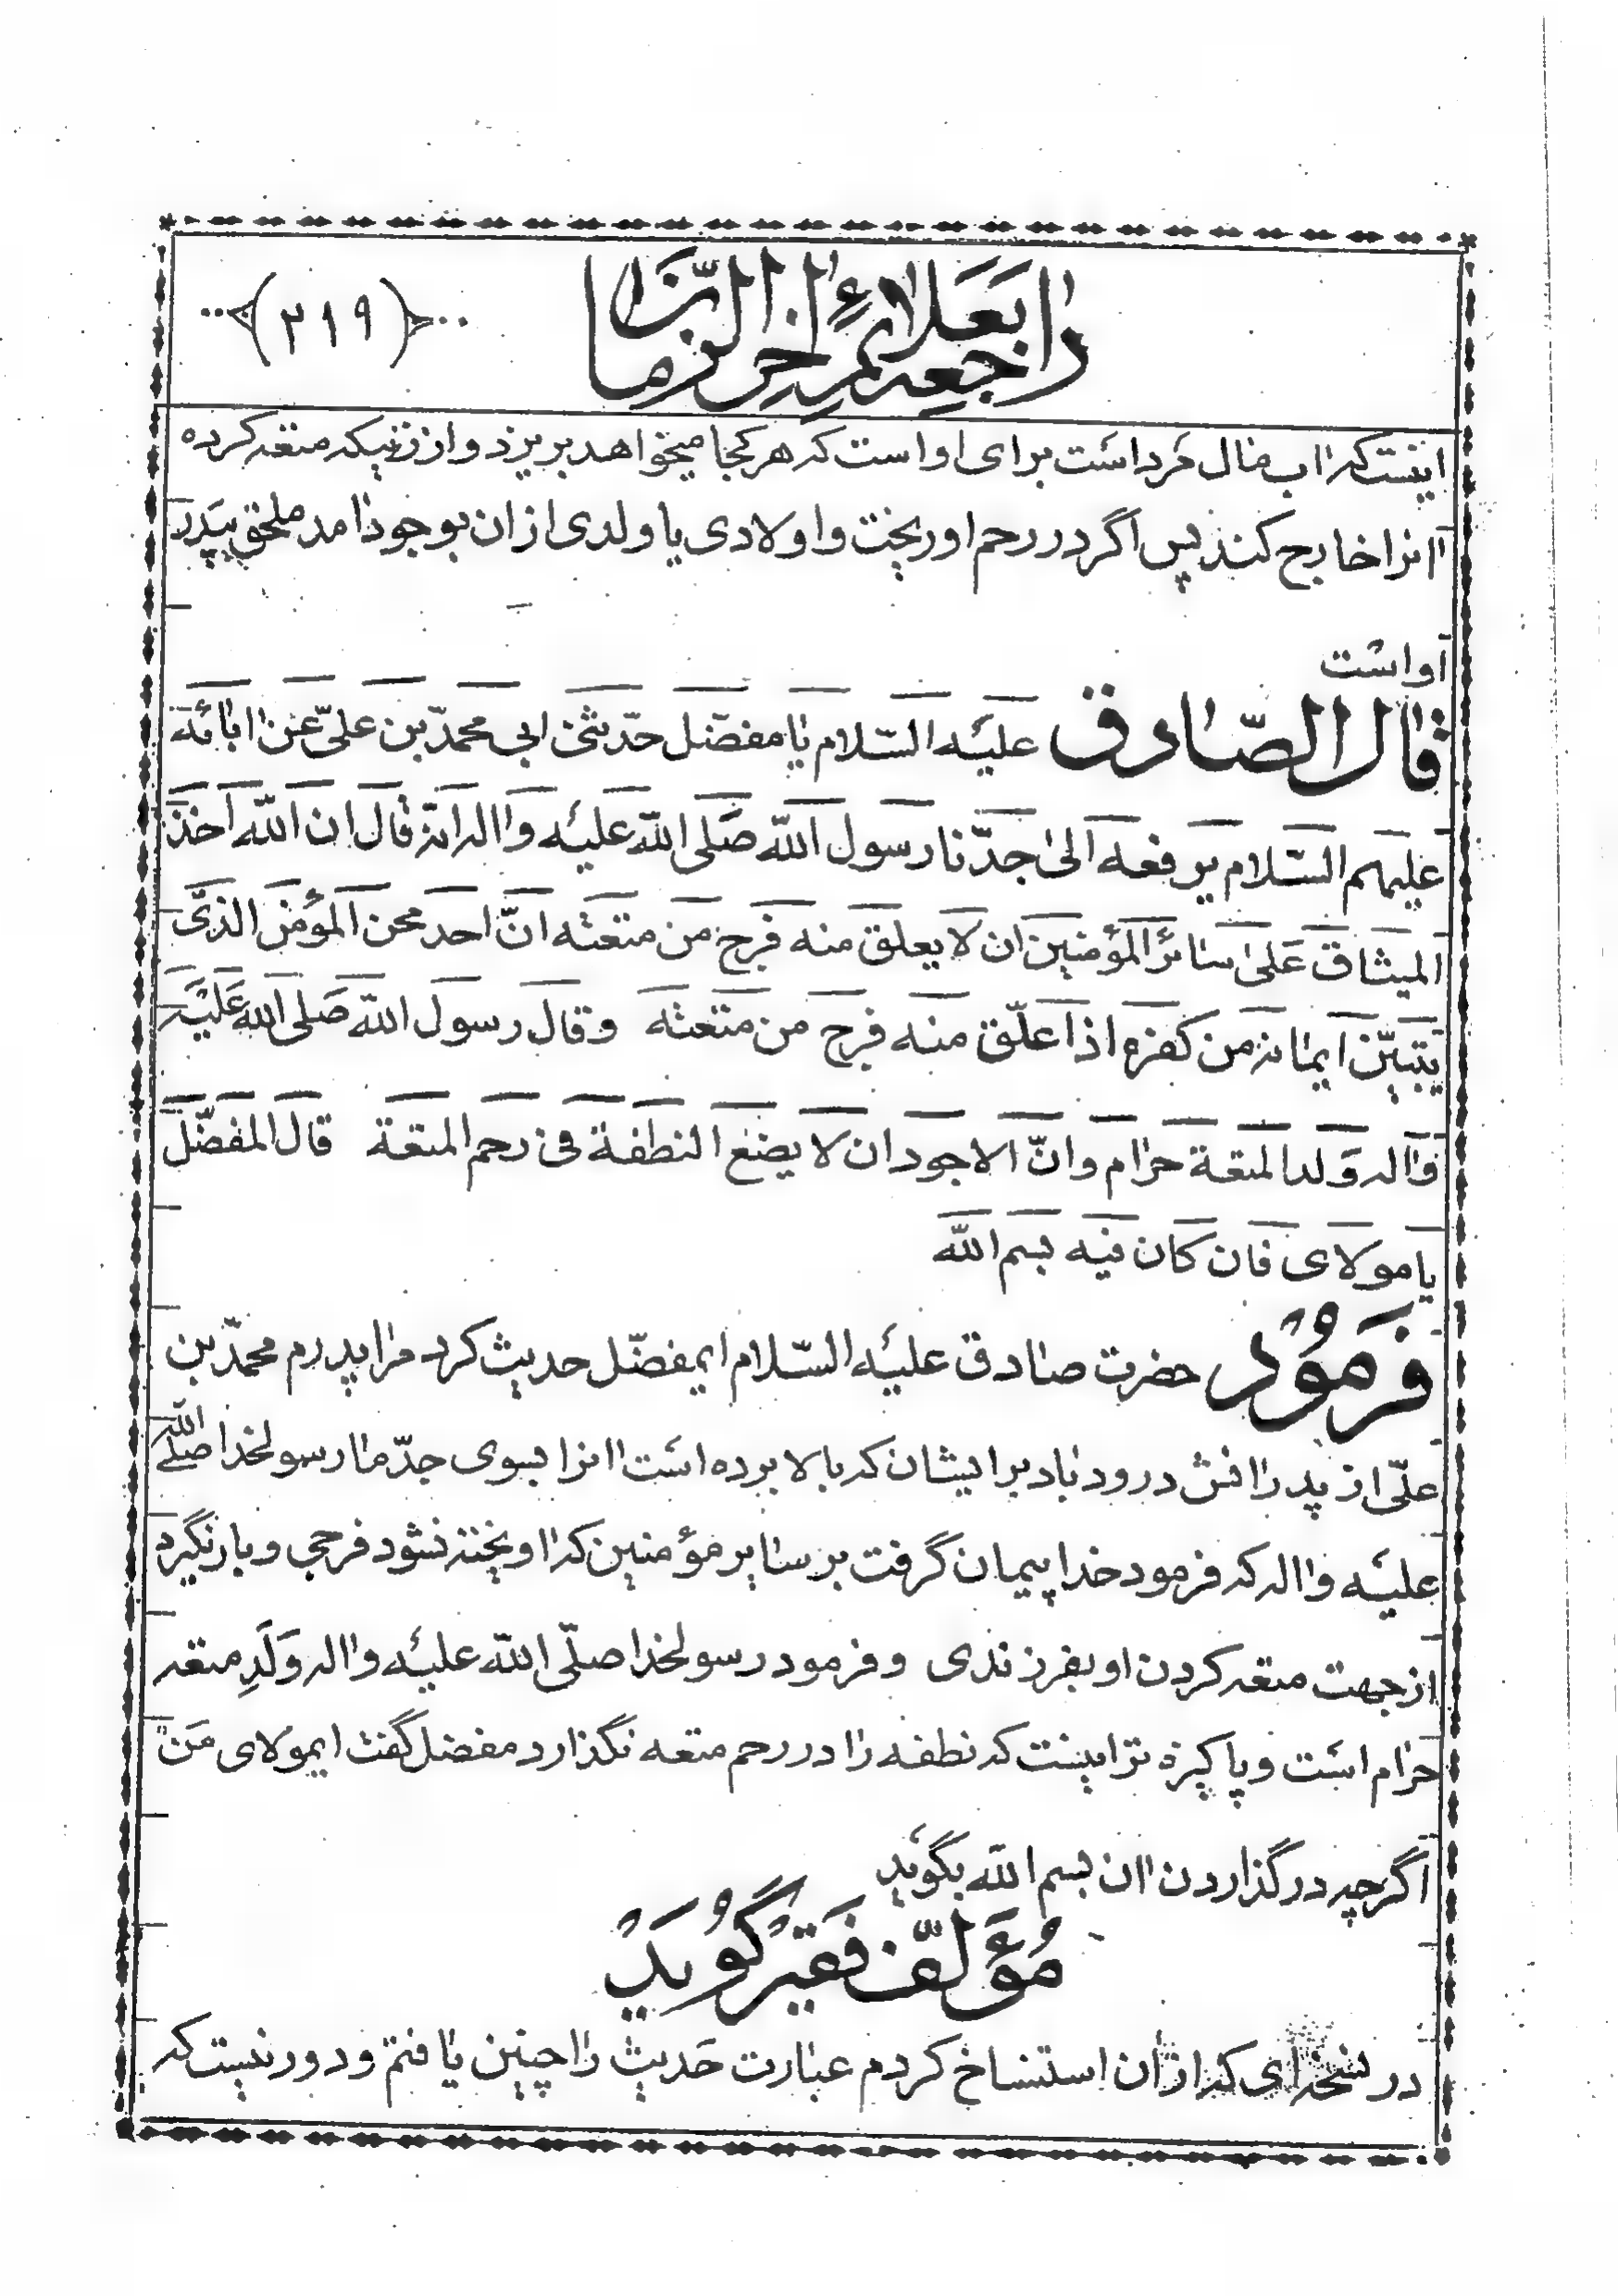 راجعه بعلائم آخر الزمان
﴿۲۱۹﴾
اینست که آب مال مرد است برای او است که هر کجا میخواهد بریزد و از زنیکه متعه کرده
آنرا خارج کند پس اگر در رحم او ریخت و اولادی یا ولدی از آن بوجود آمد ملحق بپدر
او است
قال الصّادق علیه السّلام یا مفضّل حدّثنی ابی محمّد بن علیّ عن آبائه
علیهم السّلام یرفعه الی جدّنا رسول اللّه صلی اللّه علیه وآله انه قال ان اللّه اخذ
المیثاق علی سائر المؤمنین ان لا یعلق منه فرج من متعته انّ احد محن المؤمن الذی
یتبیّن ایمانه من کفره اذا علّق منه فرج من متعته وقال رسول اللّه صلی اللّه علیه
وآله ولد المتعة حرام وانّ الاجود ان لا یضع النطفة فی رحم المتعة قال المفضّل
یا مولای فان کان فیه بسم اللّه
فرمود حضرت صادق علیه السّلام ایمفضّل حدیث کرد مرا پدرم محمّد بن
علّی از پدرانش درود باد بر ایشان که بالا برده است آنرا بسوی جدّ ما رسولخدا صلّی اللّه
علیه وآله که فرمود خدا پیمان گرفت بر سایر مؤمنین که آویخته نشود فرجی و بار نگیرد
از جهت متعه کردن او بفرزندی و فرمود رسولخدا صلّی اللّه علیه وآله وَلَدِ متعه
حرام است و پاکیزه تر اینست که نطفه را در رحم متعه نگذارد مفضل گفت ایمولای من
اگرچه در گذاردن آن بسم اللّه بگوید
مُؤلّف فَقیر گُوید
در نسخه‌ای که از آن استنساخ کردم عبارت حدیث را چنین یافتم و دور نیست که